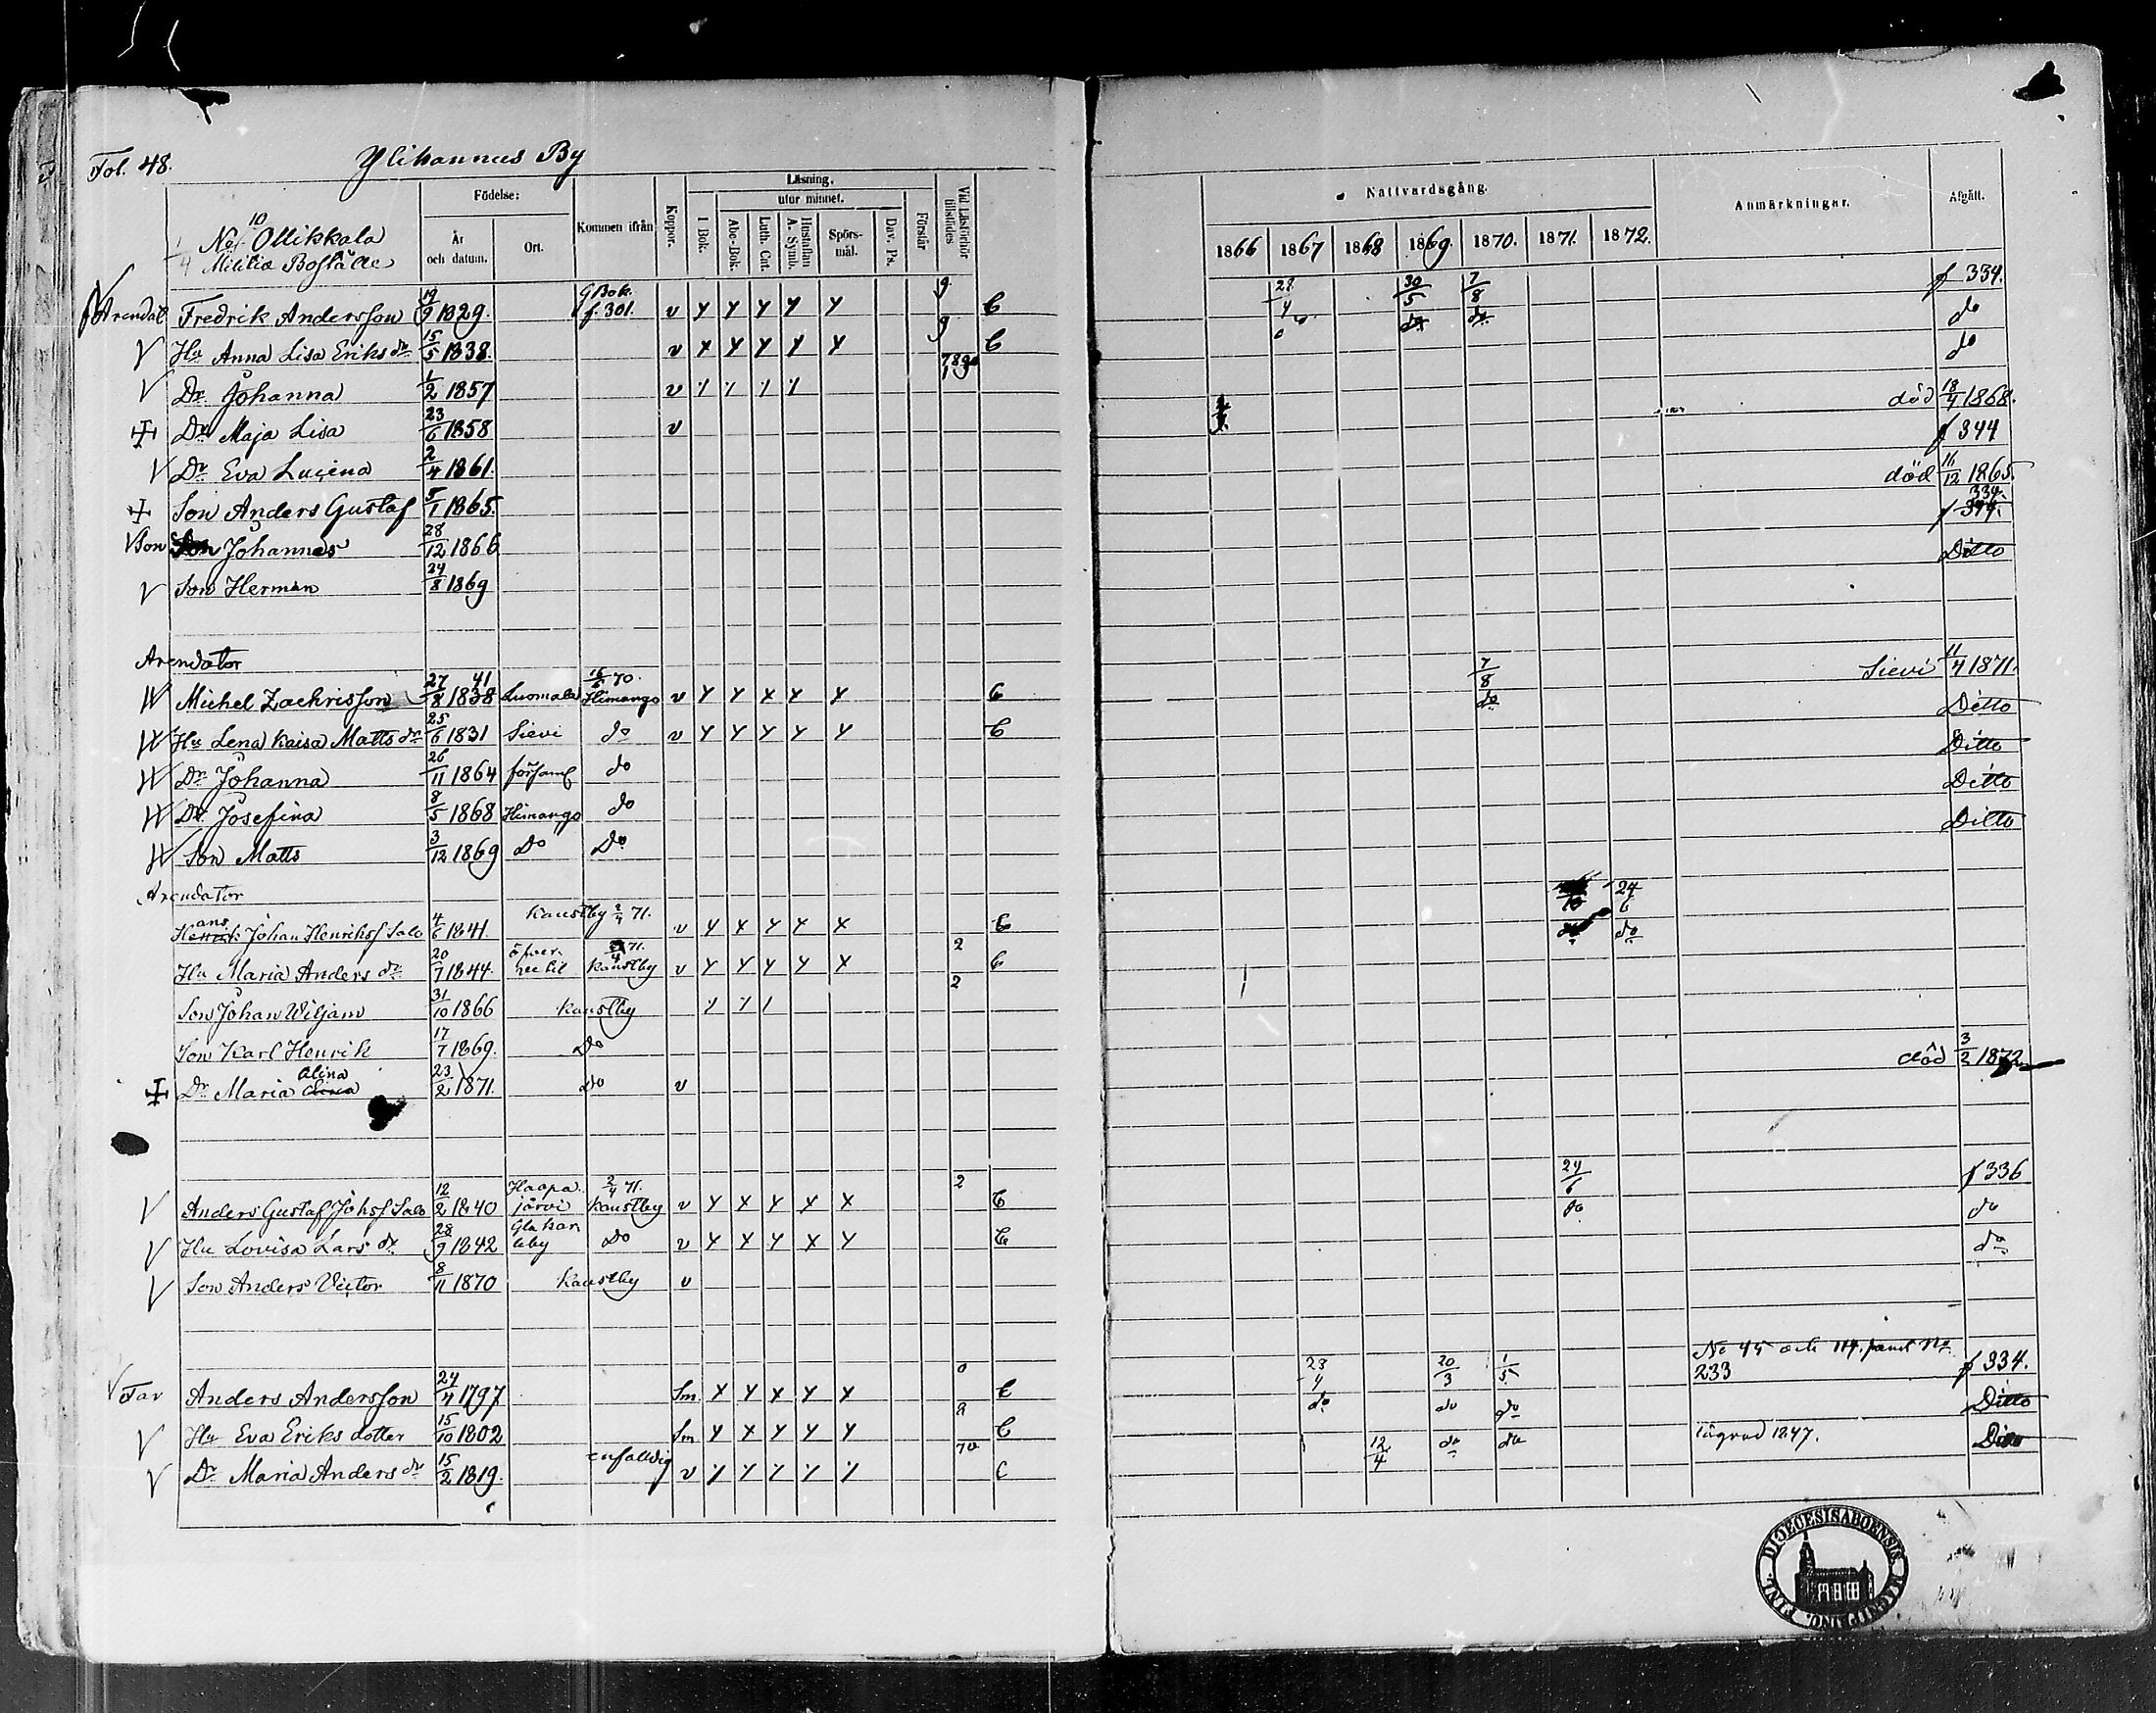 Fol. 48.
Ylihannus By
No 10 Ollikkala
1/4 Militiæ Boställe
Födelse:
År och datum.
Ort.
Kommen ifrån
Koppor.
Läsning.
utur minnet.
I Bok.
Abc-Bok.
Luth. Cat.
Hustaflan A. Symb.
Spörs-mål.
Dav. Ps.
Förstår
Vid Läsförhör tillstädes
Nattvardsgång.
1866 1867 1868 1869. 1870. 1871. 1872.
Anmärkningar.
Afgått.
Arendat Fredrik Andersson 19/9 1829. GBok. f. 301. v y y y y y 9 C 30/5 7/8 f 334.
Hu Anna Lisa Eriksdr 15/5 1838. v x y y y y 9 C do do do
Dr Johanna 1/2 1857 v do
Dr Maja Lisa 23/6 1858 v död 18/4 1868.
Dr Eva Lucina 2/4 1861. f 344
Son Anders Gustaf 5/1 1865. död 16/12 1865.
Son Johannes 28/12 1866 f 334.
Son Herman 24/8 1869 Ditto
Arendator
Michel Zachrisson 27/8 1838 41 Luomala Himango 70. v y y x y y C 7/8 Sievi 11/4 1871.
Hu Lena Kaisa Matts dr 25/6 1831 Sievi do v y y y y y C do Ditto
Dr Johanna 26/11 1864 församl do Ditto
Dr Josefina 8/5 1868 Himango do Ditto
Son Matts 3/12 1869 Do Do Ditto
Arendator
Johan Henriksf Salo 4/6 1841. Kaustby 2/4 71. v y x y y x C 24/6
Hu Maria Anders dr 20/7 1844. öfver- Kaustby 71. v y y y y x 2 C do
Son Johan Wiljam 31/10 1866 Kaustby 2
Son Karl Henrik 17/7 1869. Do
Dr Maria Alina 23/2 1871. do v död 3/2 1872
Anders Gustaf Johsf Salo 12/2 1840 Haapajärvi Kaustby 2/4 71. v y x x x x 2 C 24/6 f 336
Hu Lovisa Lars dr 28/9 1842 Gla karleby Do v y x y x y C do do
Son Anders Victor 8/11 1870 Kaustby v do
Far Anders Andersson 24/4 1797 Sm. x y x y x 0 C 23/4 20/3 1/5 No 45 och 114. samt No 233 f 334.
Hu Eva Eriks dotter 15/10 1802 Sm y x y y y C do do do Ditto
Dr Maria Anders dr 15/2 1819. enfaldig v 70 C 12/4 do do 1847. Ditto
DIOECESIS ABOENSIS. MAGNI DUC. FINL.